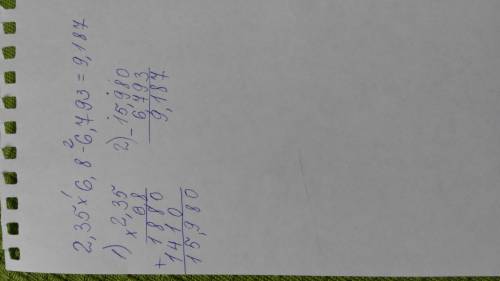 2,35 × 6,8 - 6,793 = 9,187
1 2
1) × 2,35
6,8
+ 1880
1410
15,980
2) - 15,980
6,793
9,187